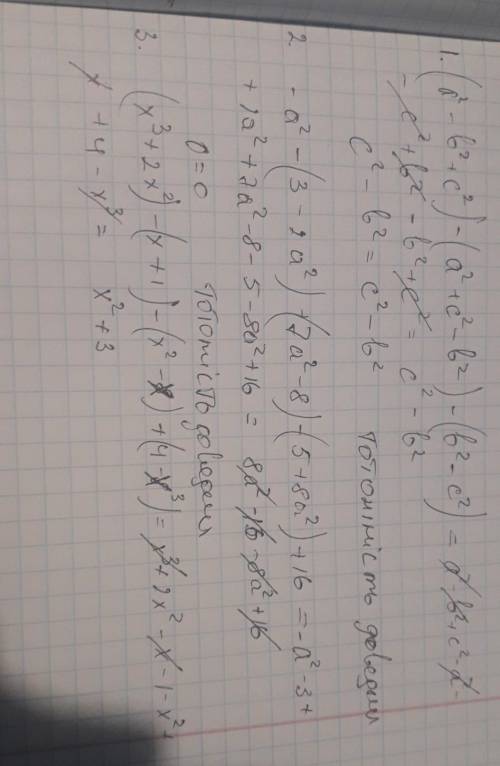 1. (a² - b² + c²) - (a² + c² - b²) - (b² - c²) = a² - b² + c² - a² -
- c² + b² - b² + c² = c² - b²
c² - b² = c² - b² тотожність доведена
2 - a² - (3 - 2a²) + (7a² - 8) - (5 + 8a²) + 16 = - a² - 3 +
+ 2a² + 7a² - 8 - 5 - 8a² + 16 = 8a² - 16 - 8a² + 16
0 = 0 тотожність доведена
3. (x³ + 2x²) - (x + 1) - (x² - x) + (4 - x³) = x³ + 2x² - x - 1 - x² +
x + 4 - x³ = x² + 3